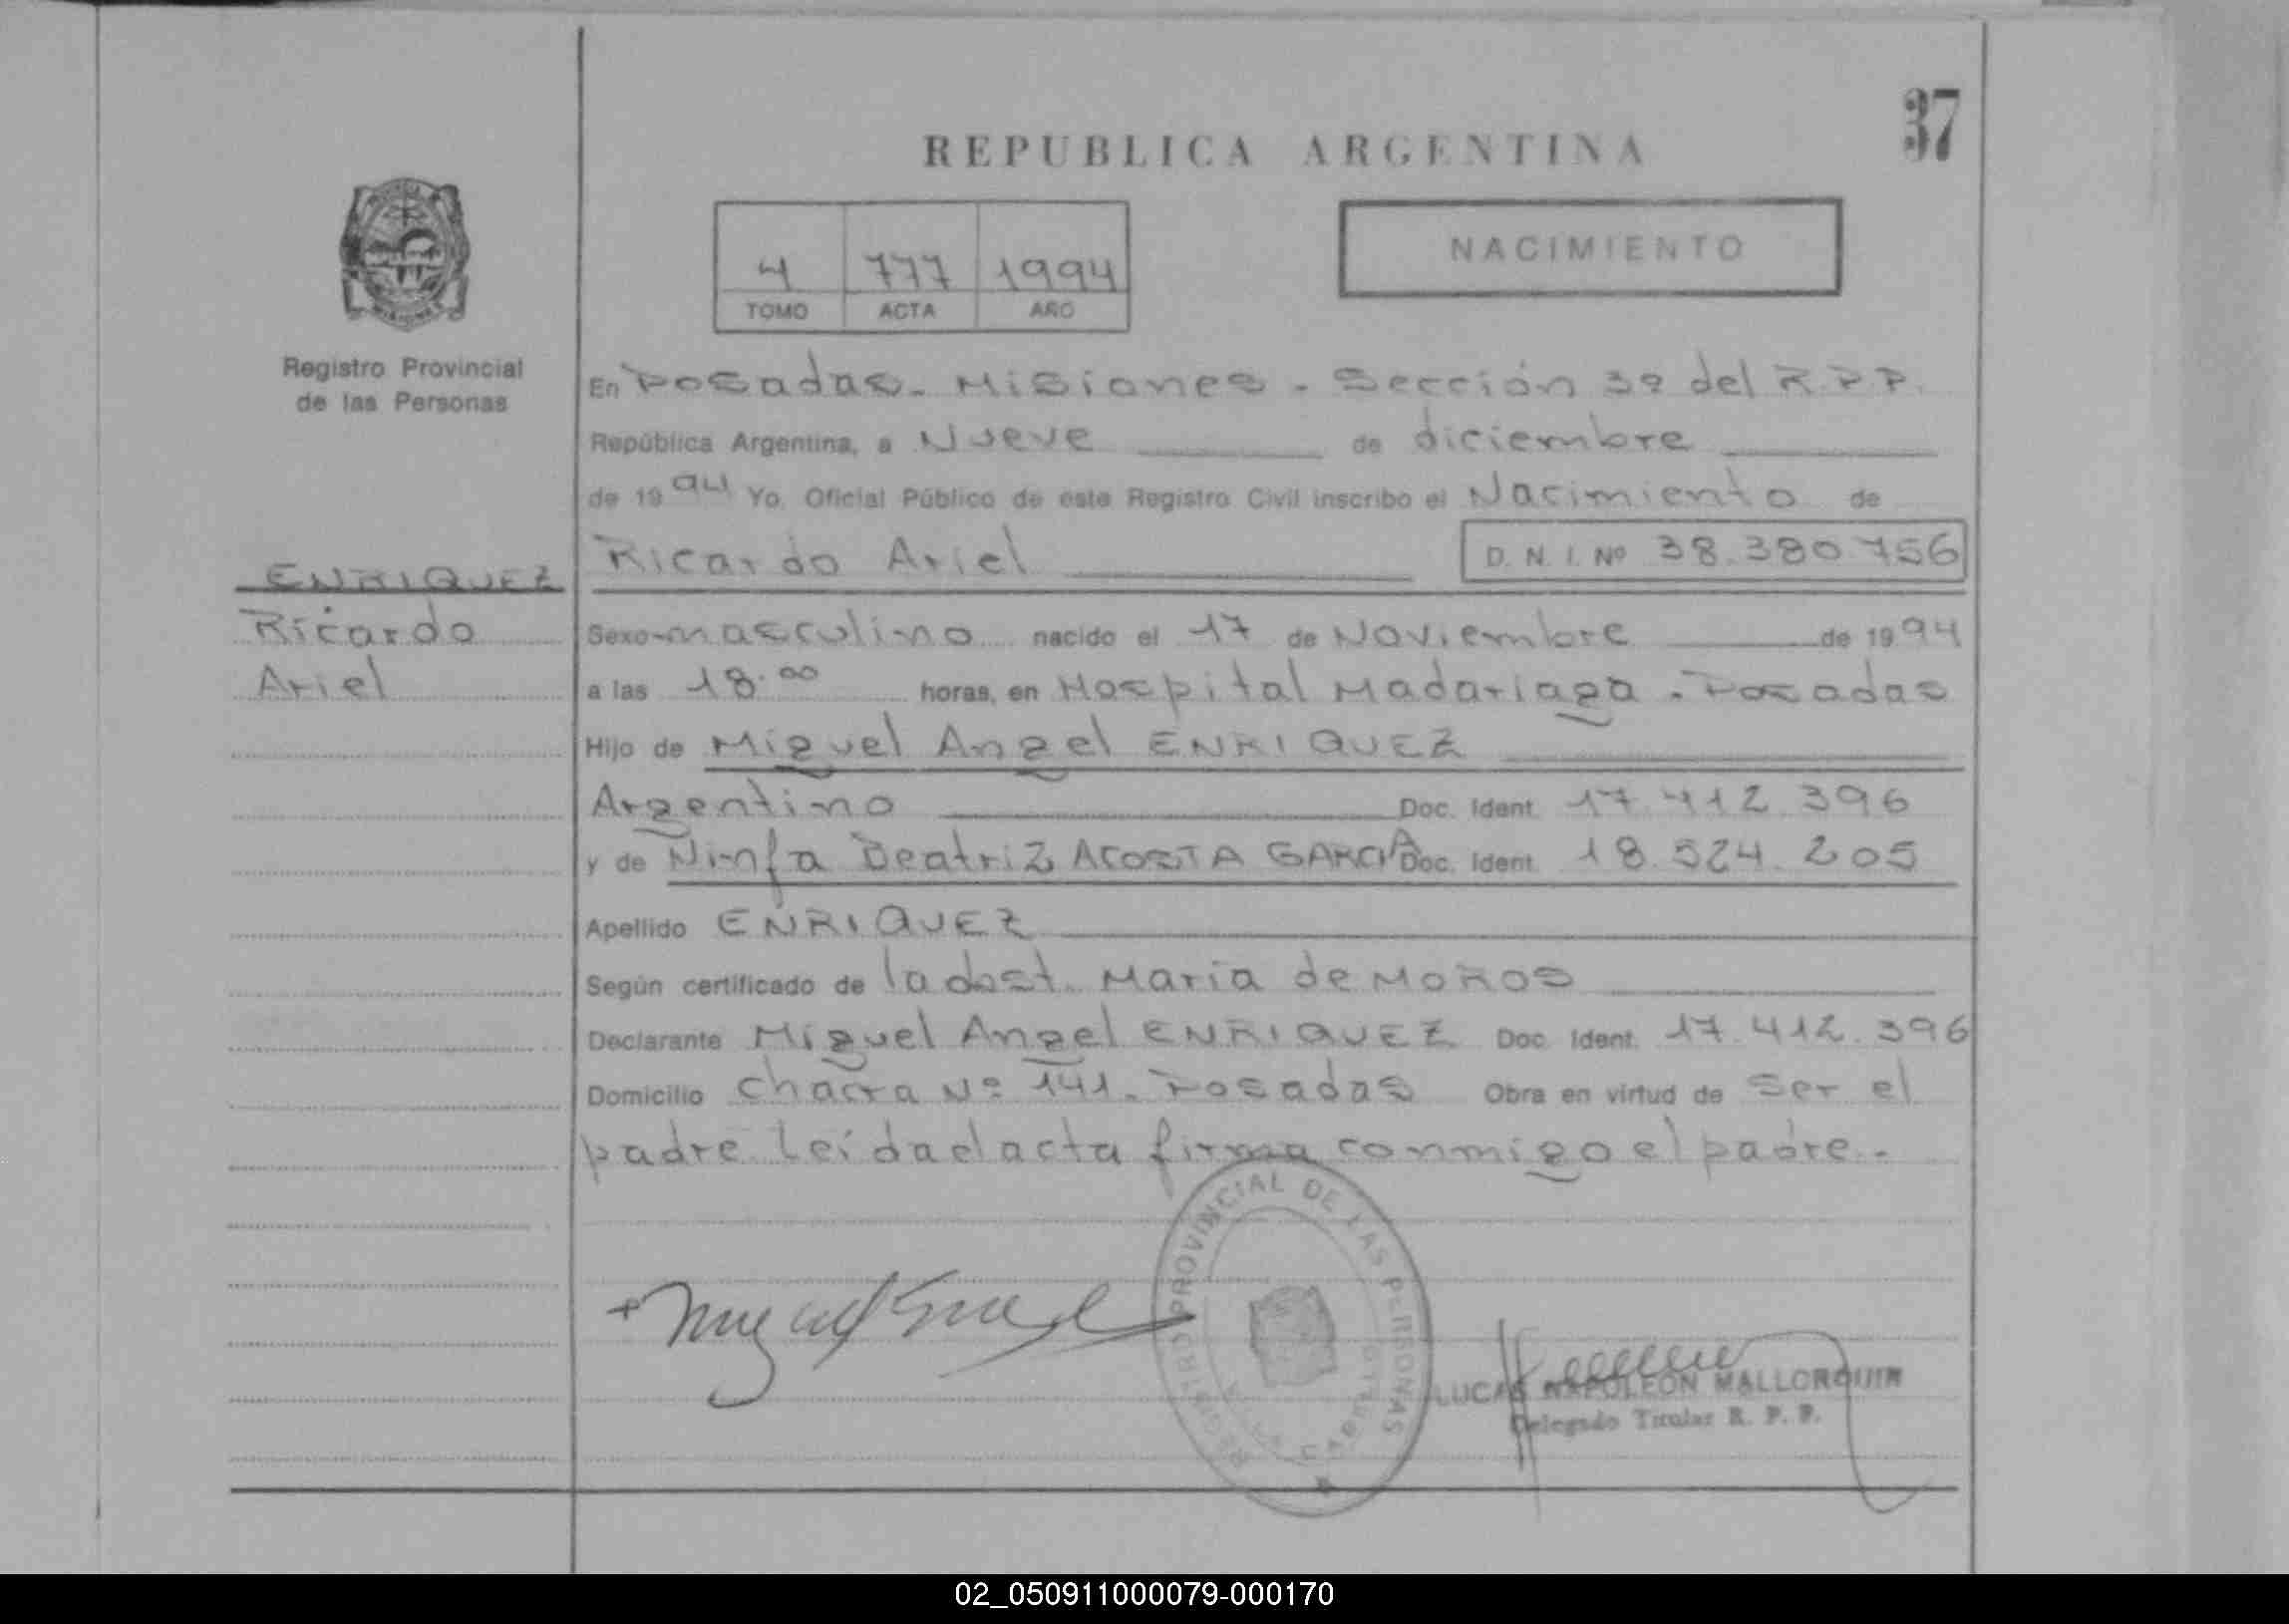 37
REPUBLICA ARGENTINA
NACIMIENTO
4 777 1994
TOMO ACTA AÑO
Registro Provincial
de las Personas
ENRIQUEZ
Ricardo
Ariel
En Posadas - Misiones - Sección 3º del R.P.P.
República Argentina, a Nueve de diciembre
de 1994 Yo, Oficial Público de este Registro Civil inscribo el Nacimiento de
Ricardo Ariel D. N. I. Nº 38.380.756
Sexo masculino nacido el 17 de Noviembre de 1994
a las 18.00 horas, en Hospital Madariaga - Posadas
Hijo de Miguel Angel ENRIQUEZ
Argentino Doc. Ident. 17.412.396
y de Ninfa Beatriz ACOSTA GARCIA Doc. Ident. 18.524.205
Apellido ENRIQUEZ
Según certificado de la obst. María de MOROS
Declarante Miguel Angel ENRIQUEZ Doc. Ident. 17.412.396
Domicilio Chacra Nº 141. Posadas Obra en virtud de ser el
padre. Leída el acta firma conmigo el padre.-
REGISTRO PROVINCIAL DE LAS PERSONAS
LUCAS NAPOLEON MALLORQUIN
Delegado Titular R. P. P.
02_050911000079-000170